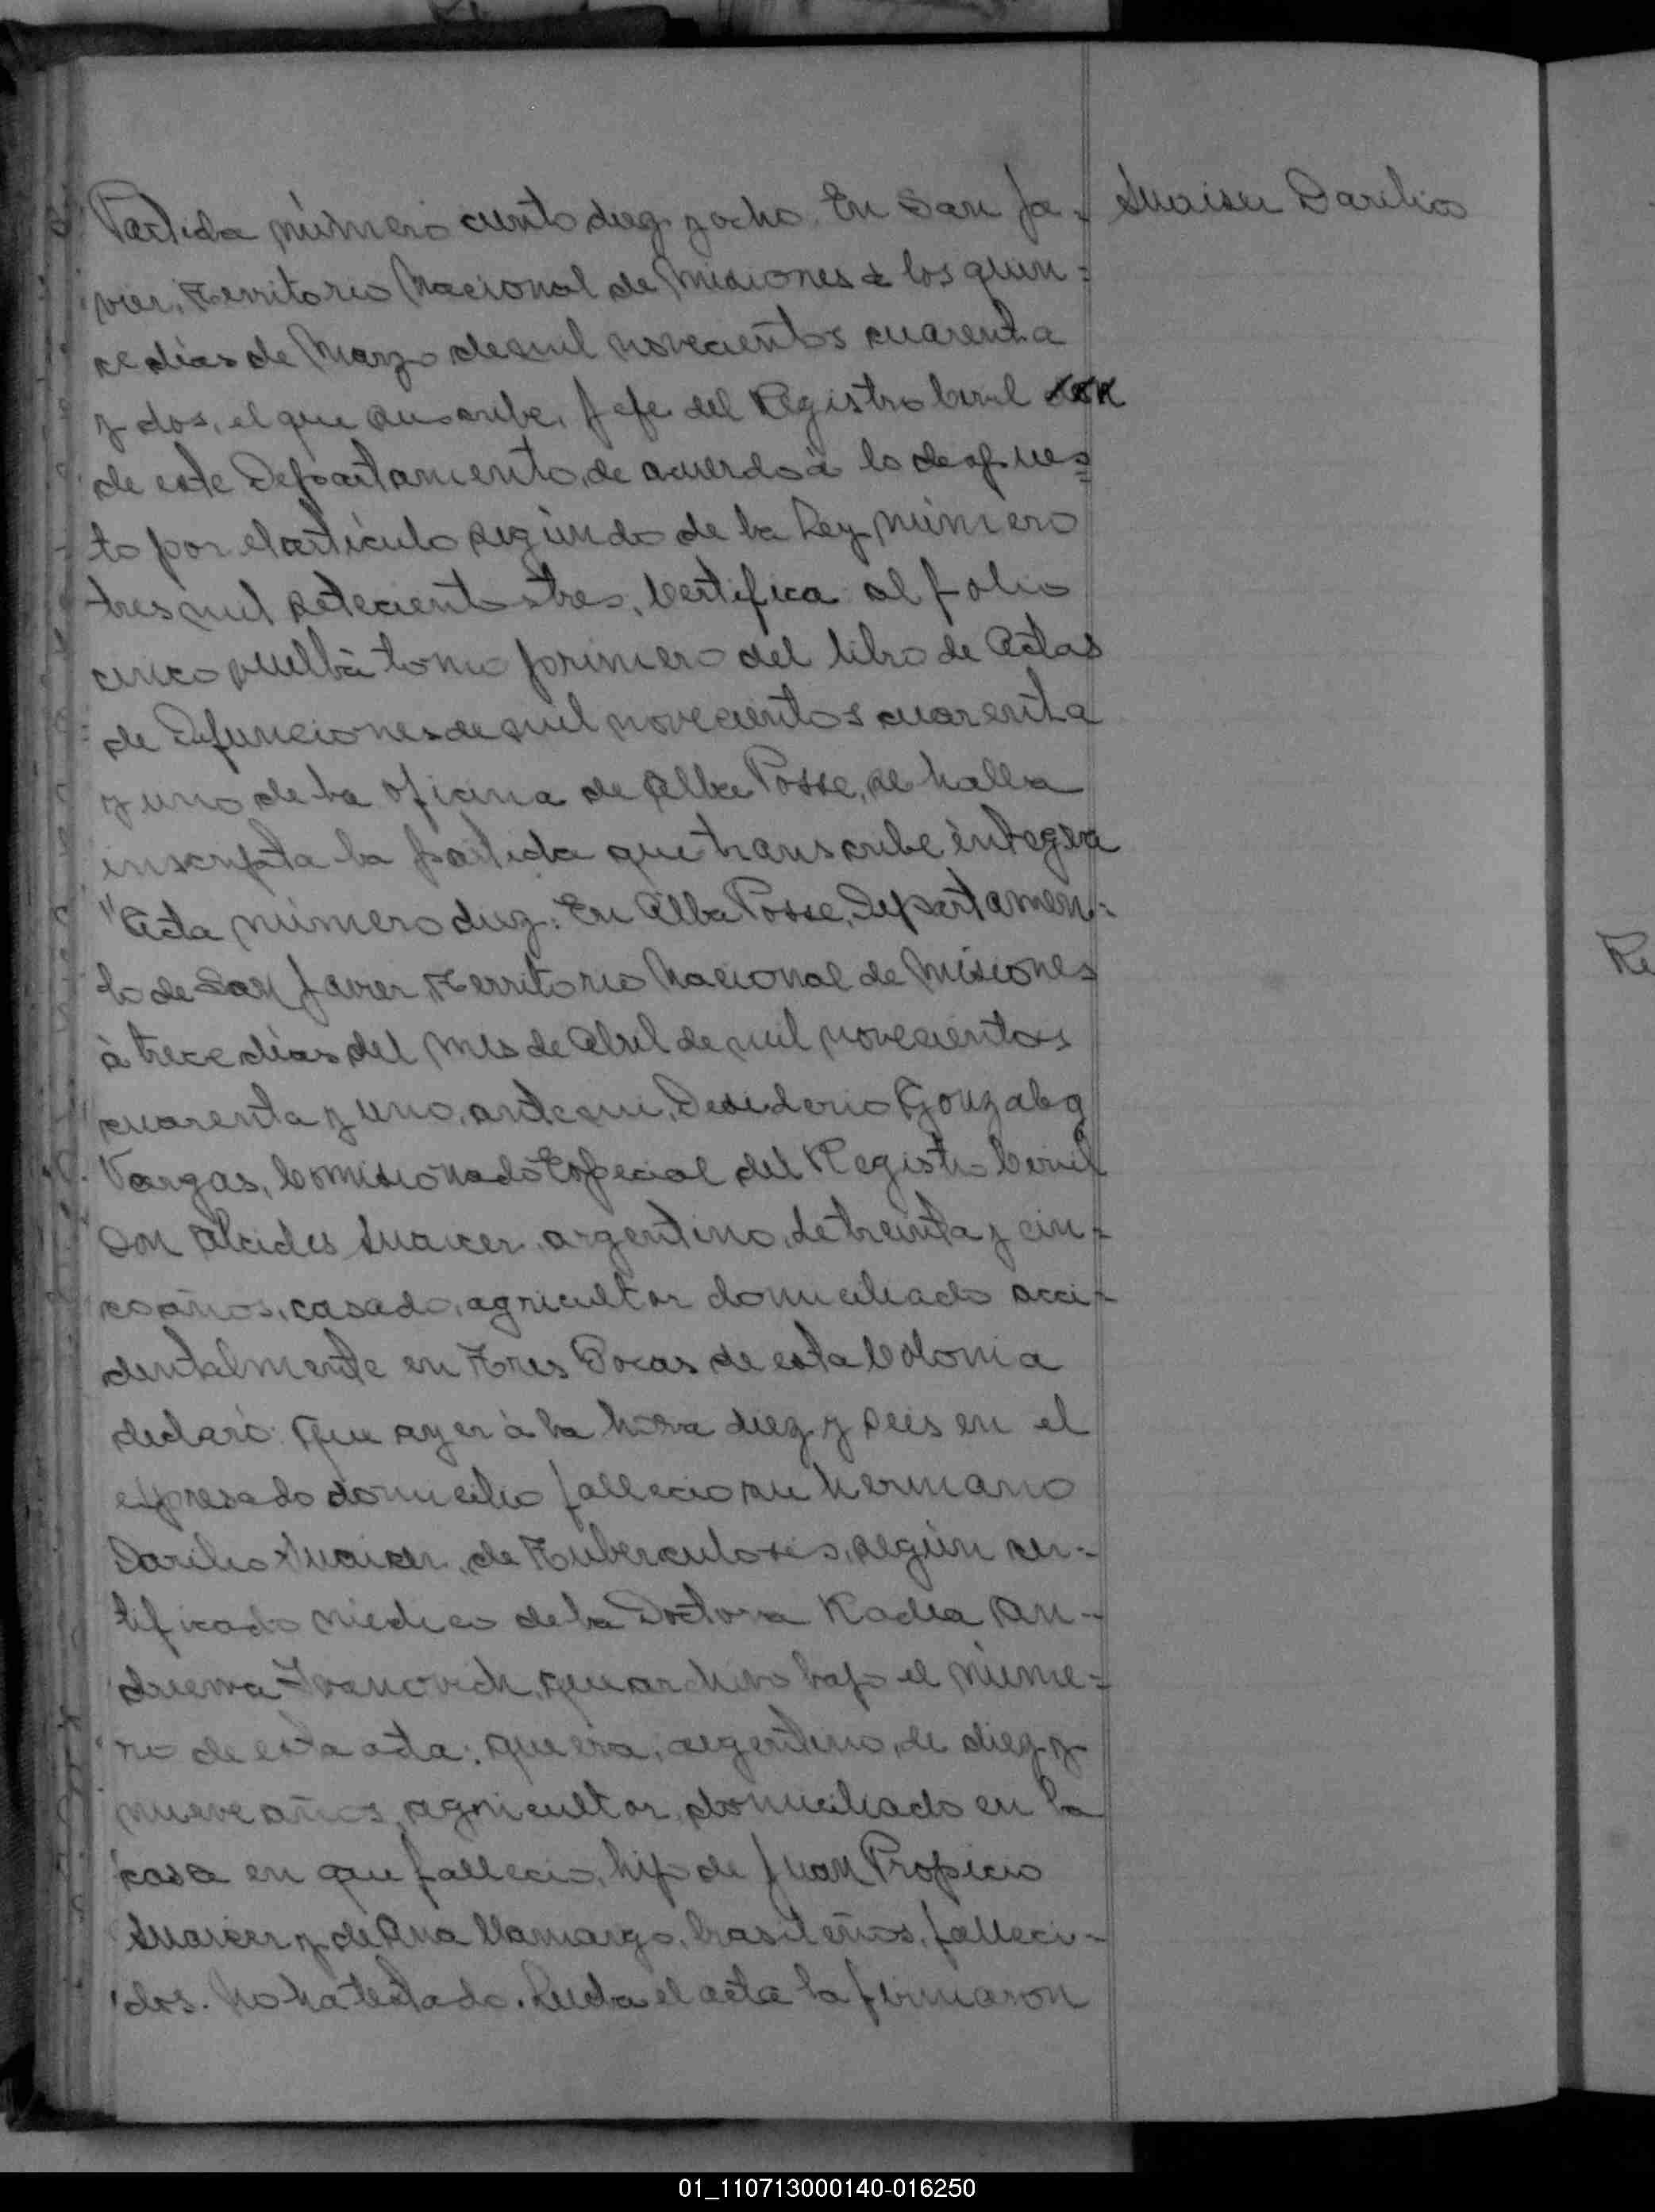 Partida número ciento diez y ocho. En San Ja-
Suaiser Darilio
vier, Territorio Nacional de Misiones a los quin-
ce días de Marzo de mil novecientos cuarenta
y dos, el que suscribe, Jefe del Registro Civil
de este Departamento, de acuerdo à lo despues
to por el artículo segundo de la Ley número
tres mil setecientos tres, Certifica: al folio
cinco vuelta tomo primero del libro de Actas
de Defunciones de mil novecientos cuarenta
y uno de la oficina de Alba Posse, se halla
inscripta la partida que transcribe íntegra
"Acta número diez: En Alba Posse, Departamen-
to de San Javier, Territorio Nacional de Misiones
à trece días del mes de Abril de mil novecientos
cuarenta y uno, ante mi, Desiderio Gonzalez
Vargas, Comisionado Especial del Registro Civil
Don Alcides Suaicer, argentino, de treinta y cin-
co años, casado, agricultor domiciliado acci-
dentalmente en Tres Bocas de esta Colonia
declaró: Que ayer à la hora diez y seis en el
expresado domicilio falleció su hermano
Darilio Suaicer, de Tuberculosis, según cer-
tificado médico de la Doctora Kadia An-
dreewa Ivanovich, que archivo bajo el núme-
ro de esta acta: que era, argentino, de diez y
nueve años, agricultor, domiciliado en la
casa en que falleció, hijo de Juan Propicio
Suaicer y de Ana Camargo, brasileños, falleci-
dos. No ha testado. Leída el acta la firmaron
Re
01_110713000140-016250